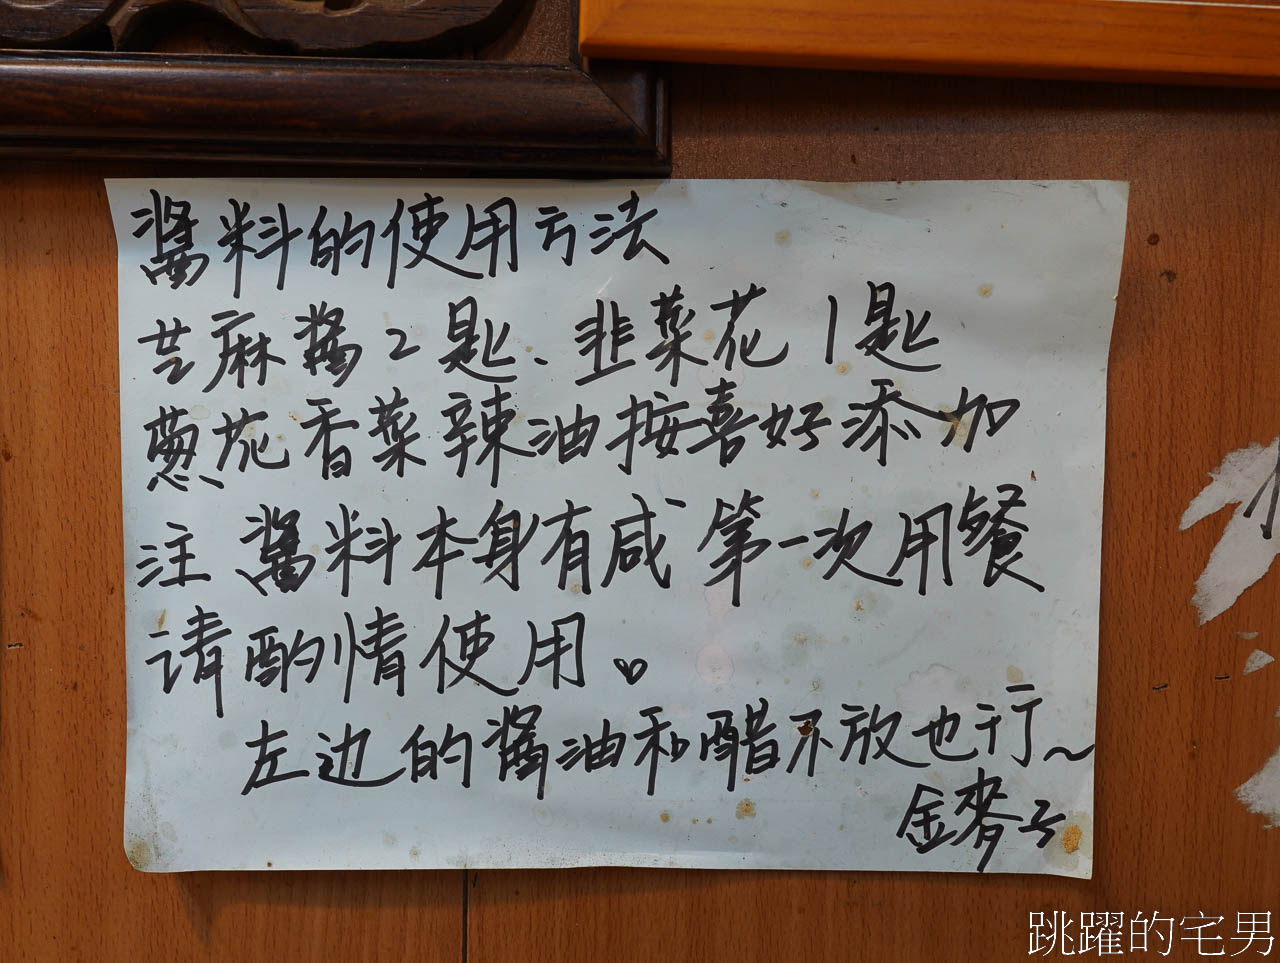 醬料的使用方法
芝麻醬2匙、韭菜花1匙
蔥花香菜辣油按喜好添加
注 醬料本身有咸 第一次用餐
请酌情使用。
左边的醬油和醋不放也行~
金麥子
跳躍的宅男